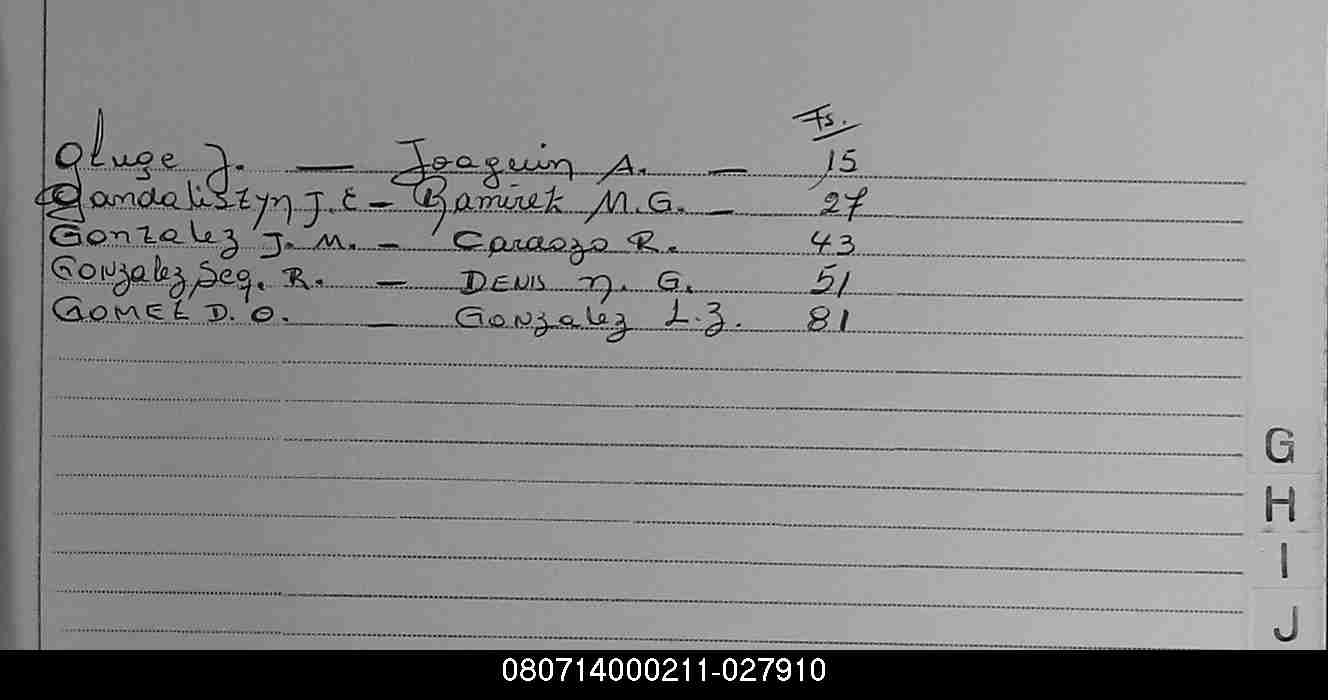 Fs.
Gluge J. — Joaquin A. — 15
Gandalistyn J. E - Ramirez M.G. - 27
Gonzalez J. M. - Cardozo R. 43
Gonzalez, Seg. R. - DENIS N. G. 51
GOMEZ D. O. - Gonzalez L.Z. 81
G
H
I
J
080714000211-027910